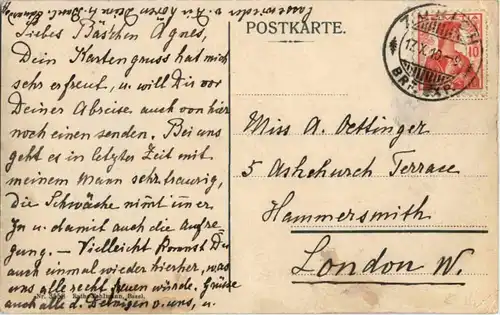 POSTKARTE.
Liebes Bäschen Agnes,
Dein Kartengruss hat mich
sehr erfreut, u. will Dir vor
Deiner Abreise auch von hier
noch einen senden. Bei uns
geht es in letzter Zeit mit
meinem Mann sehr traurig,
Die Schwäche nimt imer
zu u. damit auch die Aufre-
gung. — Vielleicht kommst Du
auch einmal wieder hierher, was
uns alle recht freuen würde. Grüsse
auch alle d. Deinigen v. uns, u.
Miss A. Oettinger
5 Ashchurch Terrace
Hammersmith
London W.
17.X.10
10
Basel.